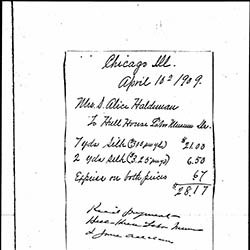 Chicago Ill.
April 10th 1909.
Mrs. S. Alice Haldeman
To Hull House Labor Museum Dr.
7 yds Silk (3.00 per yd) $21.00
2 yds silk (3.25 per yd) 6.50
Express on both pieces 67
$28.17
Rec'd payment
Hull House Labor Museum